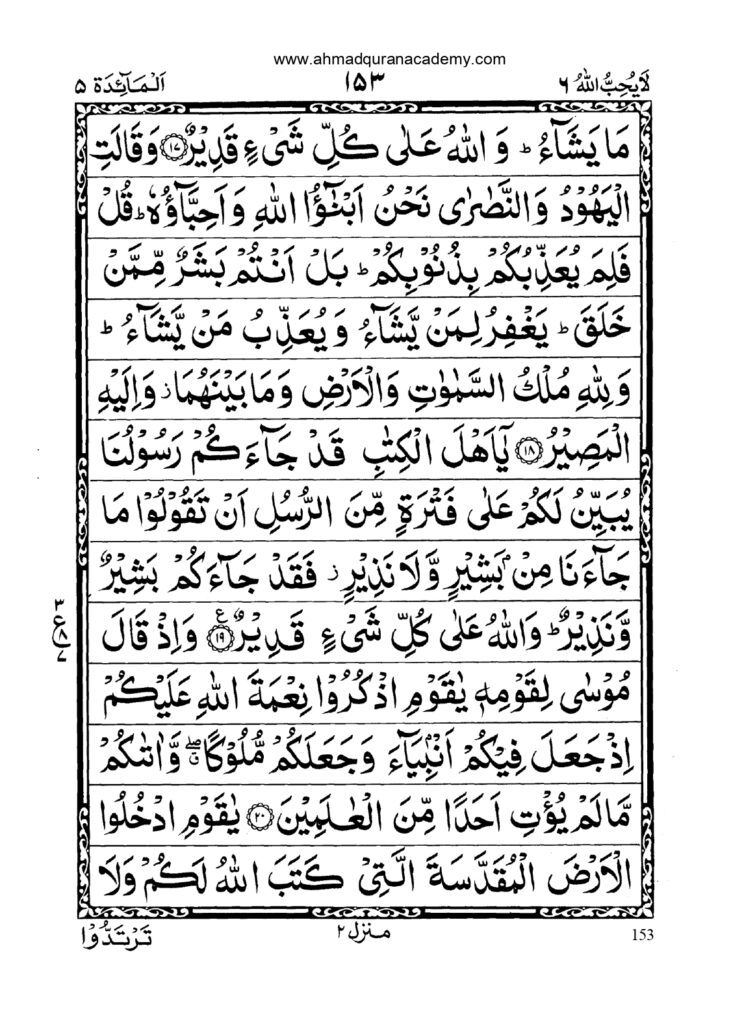 www.ahmadquranacademy.com
لَا يُحِبُّ اللهُ ٦ ١٥٣ اَلْمَآئِدَة ٥
مَا يَشَآءُ ؕ وَ اللهُ عَلٰى كُلِّ شَىْءٍ قَدِيْرٌ ۝١٧ وَ قَالَتِ
الْيَهُوْدُ وَ النَّصٰرٰى نَحْنُ اَبْنٰٓؤُا اللهِ وَ اَحِبَّآؤُهٗ ؕ قُلْ
فَلِمَ يُعَذِّبُكُمْ بِذُنُوْبِكُمْ ؕ بَلْ اَنْتُمْ بَشَرٌ مِّمَّنْ
خَلَقَ ؕ يَغْفِرُ لِمَنْ يَّشَآءُ وَ يُعَذِّبُ مَنْ يَّشَآءُ ؕ
وَ لِلّٰهِ مُلْكُ السَّمٰوٰتِ وَ الْاَرْضِ وَ مَا بَيْنَهُمَا ز وَ اِلَيْهِ
الْمَصِيْرُ ۝١٨ يٰٓاَهْلَ الْكِتٰبِ قَدْ جَآءَكُمْ رَسُوْلُنَا
يُبَيِّنُ لَكُمْ عَلٰى فَتْرَةٍ مِّنَ الرُّسُلِ اَنْ تَقُوْلُوْا مَا
جَآءَنَا مِنْۢ بَشِيْرٍ وَّ لَا نَذِيْرٍ ز فَقَدْ جَآءَكُمْ بَشِيْرٌ
وَّ نَذِيْرٌ ؕ وَ اللهُ عَلٰى كُلِّ شَىْءٍ قَدِيْرٌ ۝١٩ ع وَ اِذْ قَالَ
٣ ع ٨ ٧
مُوْسٰى لِقَوْمِهٖ يٰقَوْمِ اذْكُرُوْا نِعْمَةَ اللهِ عَلَيْكُمْ
اِذْ جَعَلَ فِيْكُمْ اَنْۢبِيَآءَ وَ جَعَلَكُمْ مُّلُوْكًا ۖق وَّ اٰتٰىكُمْ
مَّا لَمْ يُؤْتِ اَحَدًا مِّنَ الْعٰلَمِيْنَ ۝٢٠ يٰقَوْمِ ادْخُلُوا
الْاَرْضَ الْمُقَدَّسَةَ الَّتِىْ كَتَبَ اللهُ لَكُمْ وَ لَا
153 منزل ٢ تَرْتَدُّوْا